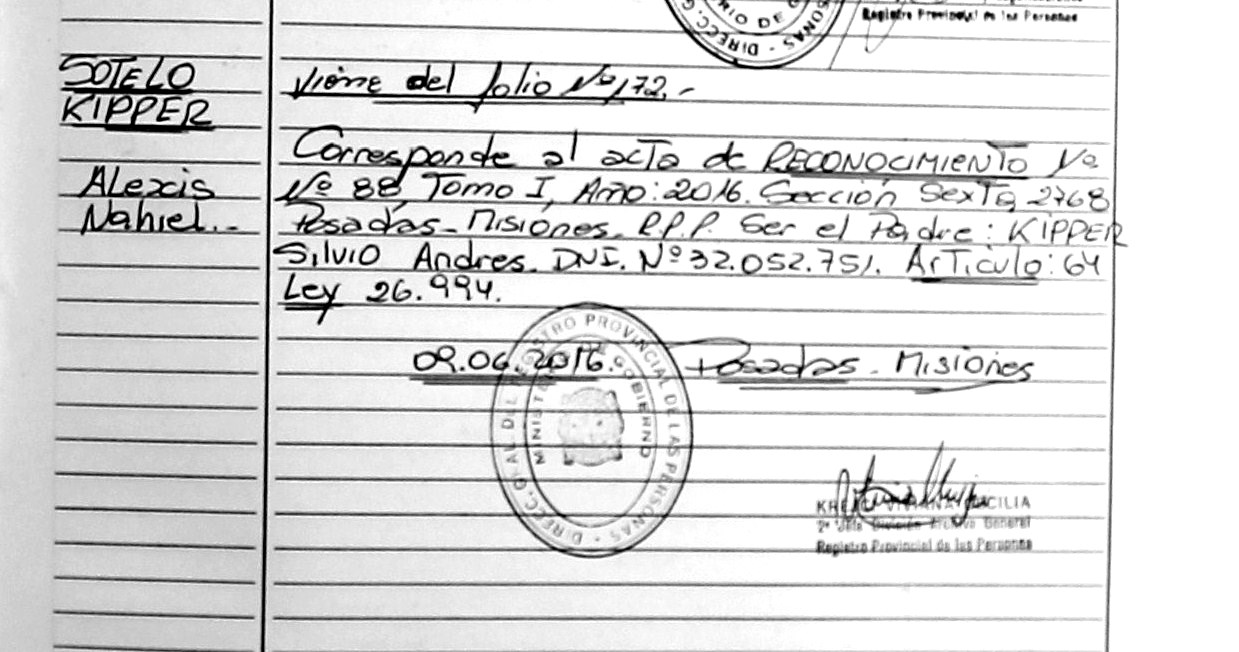 Registro Provincial de las Personas
SOTELO
KIPPER
Viene del folio Nº 172.-
Corresponde al acta de RECONOCIMIENTO
Alexis
Nº 88, Tomo I, Año: 2016. Sección Sexta, 2768
Nahiel..-
Posadas - Misiones. P.P.P. Ser el Padre: KIPPER
Silvio Andres. DNI. Nº 32.052.751. Articulo: 64
Ley 26.994.
09.06.2016. Posadas - Misiones
DIRECC. GRAL. DEL REGISTRO PROVINCIAL DE LAS PERSONAS
MINISTERIO DE GOBIERNO
CILIA
2º Jefe División Archivo General
Registro Provincial de las Personas